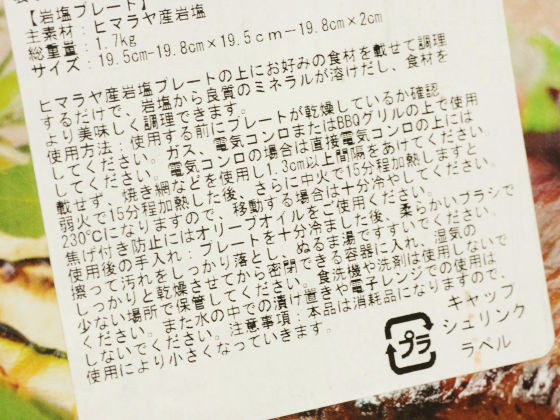 【岩塩プレート】
主素材：ヒマラヤ産岩塩
総重量：1.7kg
サイズ：19.5cm-19.8cm×19.5cm-19.8cm×2cm
ヒマラヤ産岩塩プレートの上にお好みの食材を載せて調理
するだけで、岩塩から良質のミネラルが溶けだし、食材を
より美味しく調理できます。
使用方法：使用する前にプレートが乾燥しているか確認
してください。ガス、電気コンロまたはBBQグリルの上で使用
してください。電気コンロの場合は直接電気コンロの上には
載せず、焼き網などを使用し1.3cm以上間隔をあけてください。
弱火で15分程加熱した後、さらに中火で15分程加熱しますと
230℃になりますので、移動する場合は十分冷やしてください。
焦げ付き防止にはオリーブオイルをご使用ください。
使用後の手入れ：プレートを十分冷ました後、柔らかいブラシで
擦って汚れをしっかり落とし、ぬるま湯ですすいでください。
しっかりと乾燥させてから密閉できる容器に入れ、湿気の
少ない場所で保管してください。食洗機や洗剤は使用しないで
ください。また水の中での漬け置きや電子レンジでの使用は
しないでください。注意事項：本品は消耗品になりますので、
使用により小さくなっていきます。
プラ
キャップ
シュリンク
ラベル